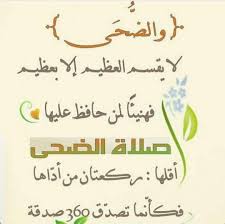 ﴿والضُّحَى﴾
لا يقسم العظيم إلا بعظيم
فهنيئًا لمن حافظ عليها
صلاة الضحى
أقلها : ركعتان من أدّاها
فكأنما تصدّق 360 صدقة